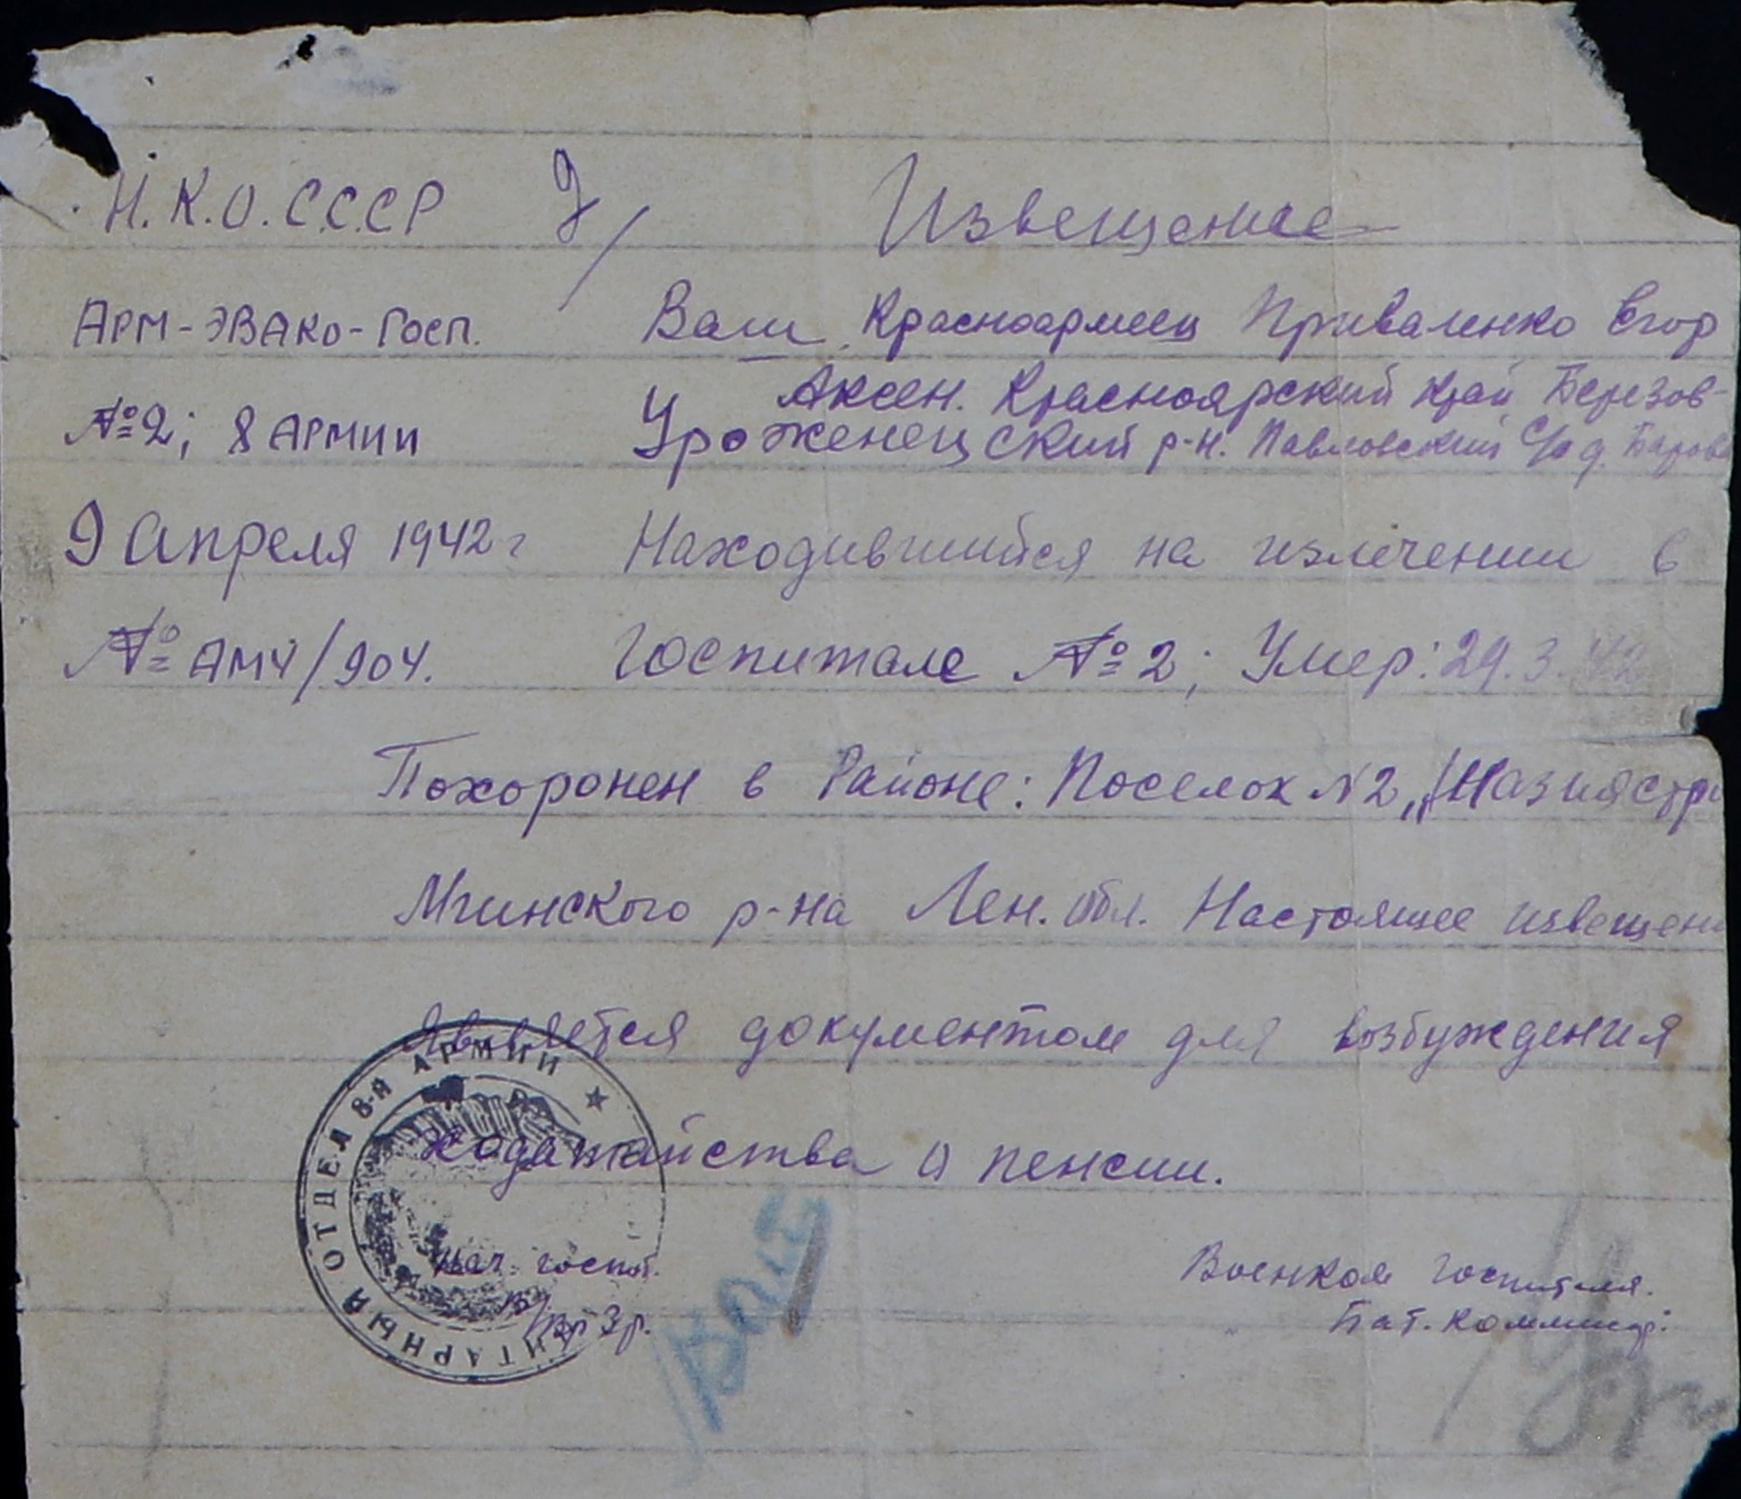 Н.К.О.С.С.С.Р Извещение
Арм-Эвако-Госп. Ваш Красноармеец Приваленко Егор
Аксен. Красноярский край Березов-
№2; 8 Армии Уроженец ский р-н. Павловский с/с д.
9 Апреля 1942 г Находившийся на излечении в
№ АМЧ/904. Госпитале №2; Умер: 29.3.42
Похоронен в Районе: Поселок N2, „Назиястро
Мгинского р-на Лен. Обл. Настоящее извещени
является документом для возбуждения
ходатайства о пенсии.
САНИТАРНЫЙ ОТДЕЛ 8-Я АРМИИ
Нач. госпит. Военком госпиталя.
Бат. Коммисар: